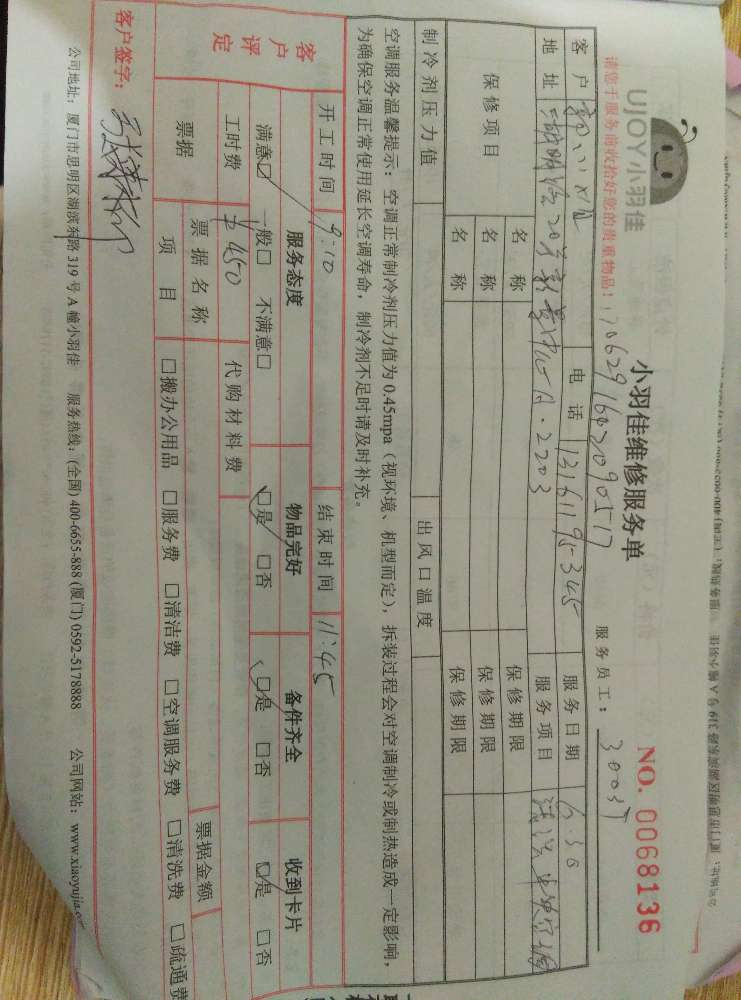 UJOY小羽佳
小羽佳维修服务单
NO. 0068136
请您于服务前收拾好您的贵重物品!
1706291602090517
服务员工: 30037
客户 电话 13161195345 服务日期 6.30
地址 湖明路20号 A.2203 服务项目 清洗中央空调
保修项目 名称 保修期限
名称 保修期限
名称 保修期限
制冷剂压力值 出风口温度
空调服务温馨提示: 空调正常制冷剂压力值为0.45mpa(视环境、机型而定), 拆装过程会对空调制冷或制热造成一定影响,
为确保空调正常使用延长空调寿命, 制冷剂不足时请及时补充。
开工时间 9:10 结束时间 11:45
客户评定 服务态度 物品完好 备件齐全 收到卡片
满意☑ 一般□ 不满意□ ☑是 □否 ☑是 □否 ☑是 □否
工时费 ¥450 代购材料费
票据 票据名称 票据金额
项目 □搬办公用品 □服务费 □清洁费 □空调服务费 □清洗费 □疏通费
客户签字:
公司地址: 厦门市思明区湖滨东路319号A幢小羽佳 服务热线: (全国) 400-6655-888 (厦门) 0592-5178888 公司网站: www.xiaoyujia.co